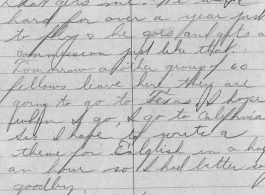 that gets me. We work
hard for over a year just
to fly & he goes and gets a
commission just like that.
Tomorrow another group of 60
fellows leave here. They are
going to go to Texas. I hope
when I go, I go to California
Sis I have to write a
theme for English in a half
an hour so I had better say
goodby.